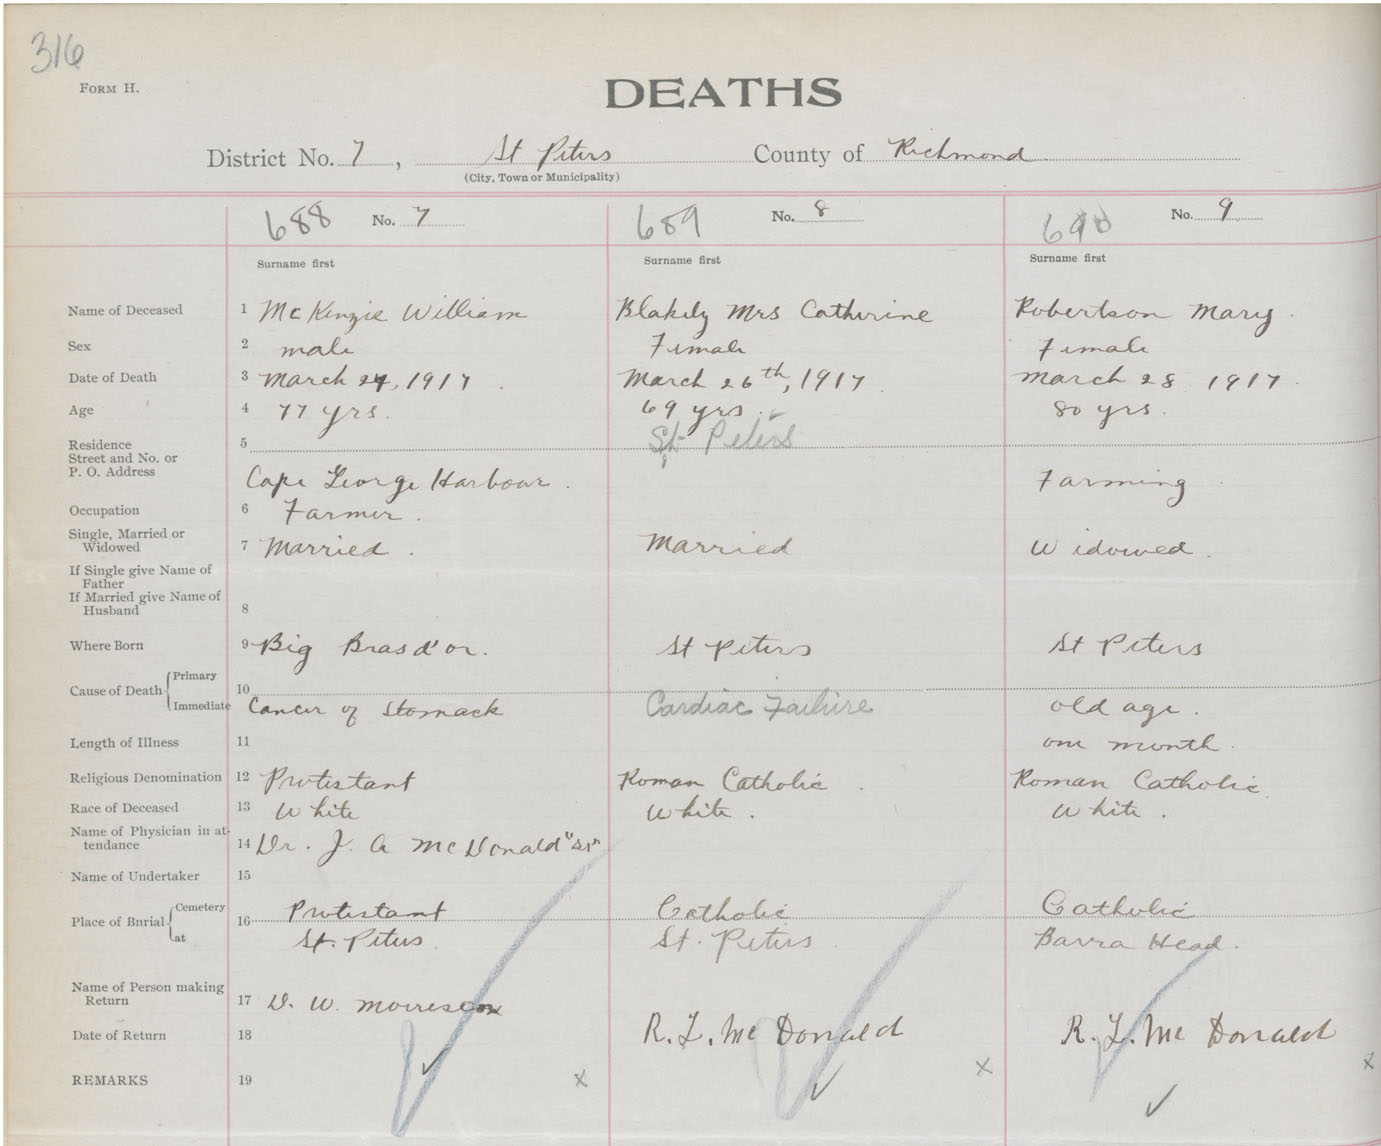 316
FORM H.
DEATHS
District No. 7, St Peters County of Richmond
(City, Town or Municipality)
688 No. 7 689 No. 8 690 No. 9
Surname first Surname first Surname first
Name of Deceased 1 McKenzie William Blakely Mrs Catherine Robertson Mary.
Sex 2 male Female Female
Date of Death 3 March 24, 1917. March 26th, 1917. March 28 1917.
Age 4 77 yrs. 69 yrs. 80 yrs.
Residence 5 St Peters
Street and No. or
P. O. Address Cape George Harbour. Farming
Occupation 6 Farmer.
Single, Married or
Widowed 7 Married. Married Widowed.
If Single give Name of
Father
If Married give Name of
Husband 8
Where Born 9 Big Bras d'or. St Peters St Peters
Cause of Death Primary 10
Immediate Cancer of Stomack Cardiac Failure old age.
Length of Illness 11 one month.
Religious Denomination 12 Protestant Roman Catholic. Roman Catholic.
Race of Deceased 13 White White. White.
Name of Physician in at-
tendance 14 Dr. J. A McDonald "Sr"
Name of Undertaker 15
Place of Burial Cemetery 16 Protestant Catholic Catholic
at St. Peters. St. Peters. Barra Head.
Name of Person making
Return 17 D. W. Morrison
Date of Return 18 R. L. Mc Donald R. L. Mc Donald
REMARKS 19 x x x